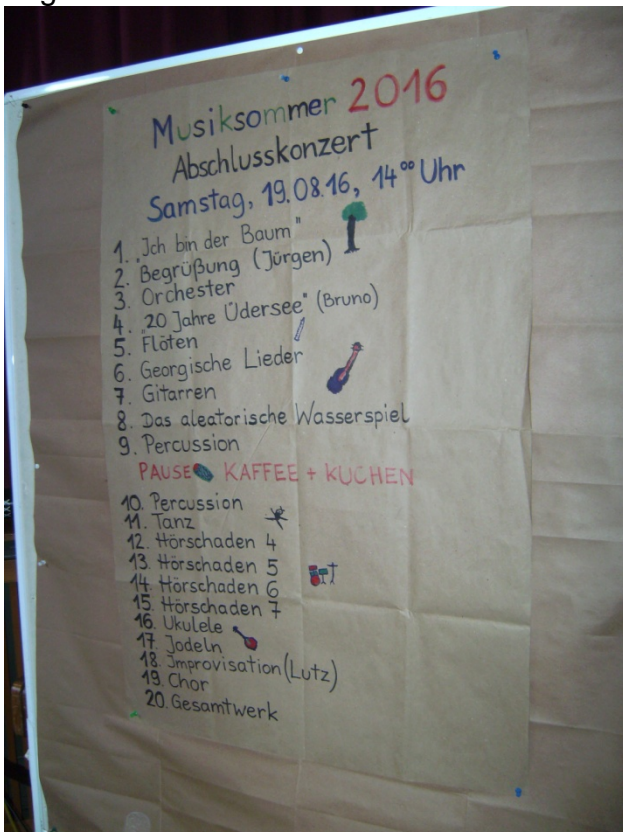 Musiksommer 2016
Abschlusskonzert
Samstag, 19.08.16, 14⁰⁰ Uhr
1. „Ich bin der Baum"
2. Begrüßung (Jürgen)
3. Orchester
4. „20 Jahre Üdersee" (Bruno)
5. Flöten
6. Georgische Lieder
7. Gitarren
8. Das aleatorische Wasserspiel
9. Percussion
PAUSE KAFFEE + KUCHEN
10. Percussion
11. Tanz
12. Hörschaden 4
13. Hörschaden 5
14. Hörschaden 6
15. Hörschaden 7
16. Ukulele
17. Jodeln
18. Improvisation (Lutz)
19. Chor
20. Gesamtwerk